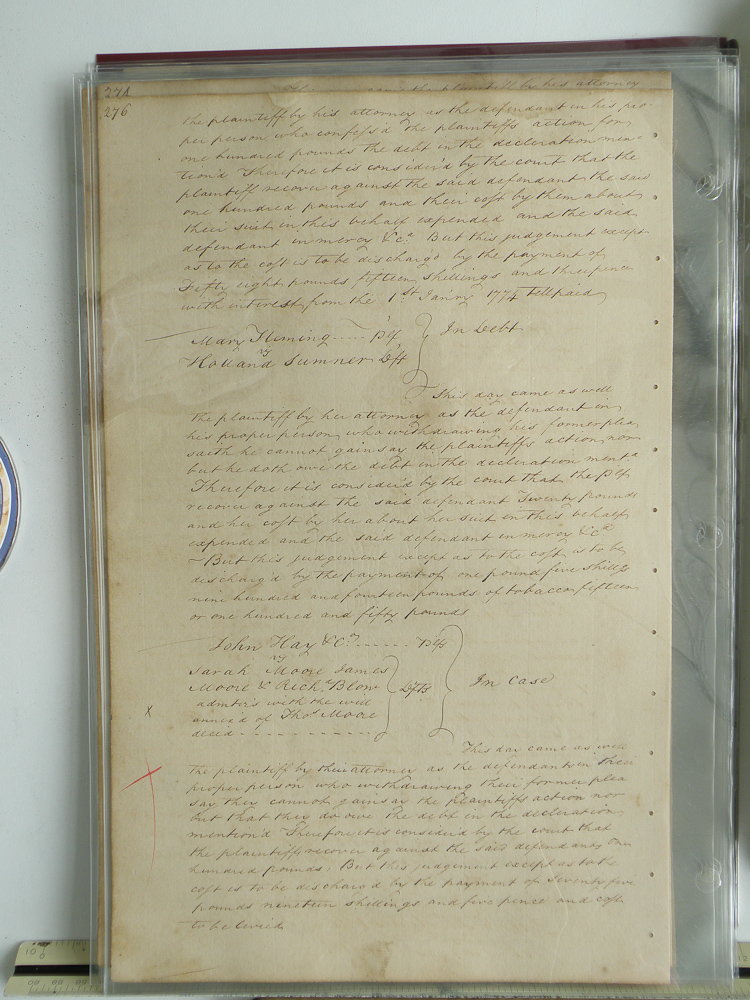 274
came the plaintiff by his attorney
276
the plaintiff by his attorney as the defendant in his pro-
per person who confess'd the plaintiffs action for
one hundred pounds the debt in the declaration men=
tion'd Therefore it is consider'd by the court that the
plaintiff recover against the said defendant the said
one hundred pounds and their cost by them about
their suit in this behalf expended and the said
defendant in mercy &c.a But this judgement except
as to the cost is to be discharg'd by the payment of
Fifty eight pounds fifteen shillings and threepence
with interest from the 1st Jan'ry 1774 till paid
Mary Fleming ---- Plf
vs
Holland Sumner Dft
In Debt
This day came as well
the plaintiff by her attorney as the defendant in
his proper person, who withdrawing his former plea
saith he cannot gainsay the plaintiffs action, nor
but he doth owe the debt in the decleration ment.d
Therefore it is consider'd by the court that the Plf
recover against the said defendant Twenty pounds
and her cost by her about her suit in this behalf
expended and the said defendant in mercy &c.a
- But this judgement except as to the cost is to be
discharg'd by the payment of one pound five shillgs
nine hundred and fourteen pounds of tobacco fifteen
or one hundred and fifty pounds
John Hay & Co. ------ Plfs
vs
Sarah Moore James
Moore & Rich.d Blow
admtrs with the will
annex'd of Thos. Moore
deced ------------
Dfts
In Case
x
This day came as well
the plaintiff by their attorney as the defendants in their
proper person who withdrawing their former plea
say they cannot gainsay the plaintiffs action nor
but that they do owe the debt in the decleration
mention'd Therefore it is consider'd by the court that
the plaintiff recover against the said defendants one
hundred pounds, But this judgement except as to the
cost is to be discharg'd by the payment of Seventy five
pounds nineteen shillings and five pence and cost
to be levied